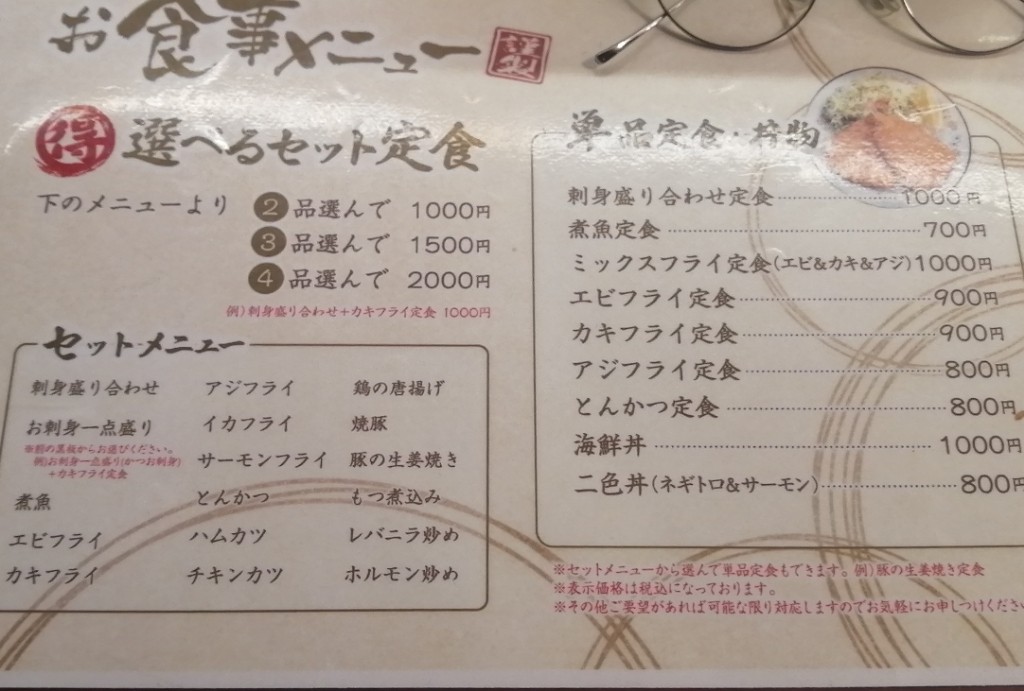 お食事メニュー
謹製
得 選べるセット定食
下のメニューより
2 品選んで 1000円
3 品選んで 1500円
4 品選んで 2000円
例)刺身盛り合わせ+カキフライ定食 1000円
セットメニュー
刺身盛り合わせ
お刺身一点盛り
※前の黒板からお選びください。
例)お刺身一点盛り(かつお刺身)
+カキフライ定食
煮魚
エビフライ
カキフライ
アジフライ
イカフライ
サーモンフライ
とんかつ
ハムカツ
チキンカツ
鶏の唐揚げ
焼豚
豚の生姜焼き
もつ煮込み
レバニラ炒め
ホルモン炒め
単品定食・丼物
刺身盛り合わせ定食 1000円
煮魚定食 700円
ミックスフライ定食(エビ&カキ&アジ)1000円
エビフライ定食 900円
カキフライ定食 900円
アジフライ定食 800円
とんかつ定食 800円
海鮮丼 1000円
二色丼(ネギトロ&サーモン) 800円
※セットメニューから選んで単品定食もできます。例)豚の生姜焼き定食
※表示価格は税込になっております。
※その他ご要望があれば可能な限り対応しますのでお気軽にお申しつけください